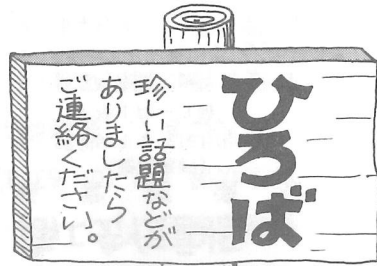 ひろば
珍しい話題などが
ありましたら
ご連絡ください。